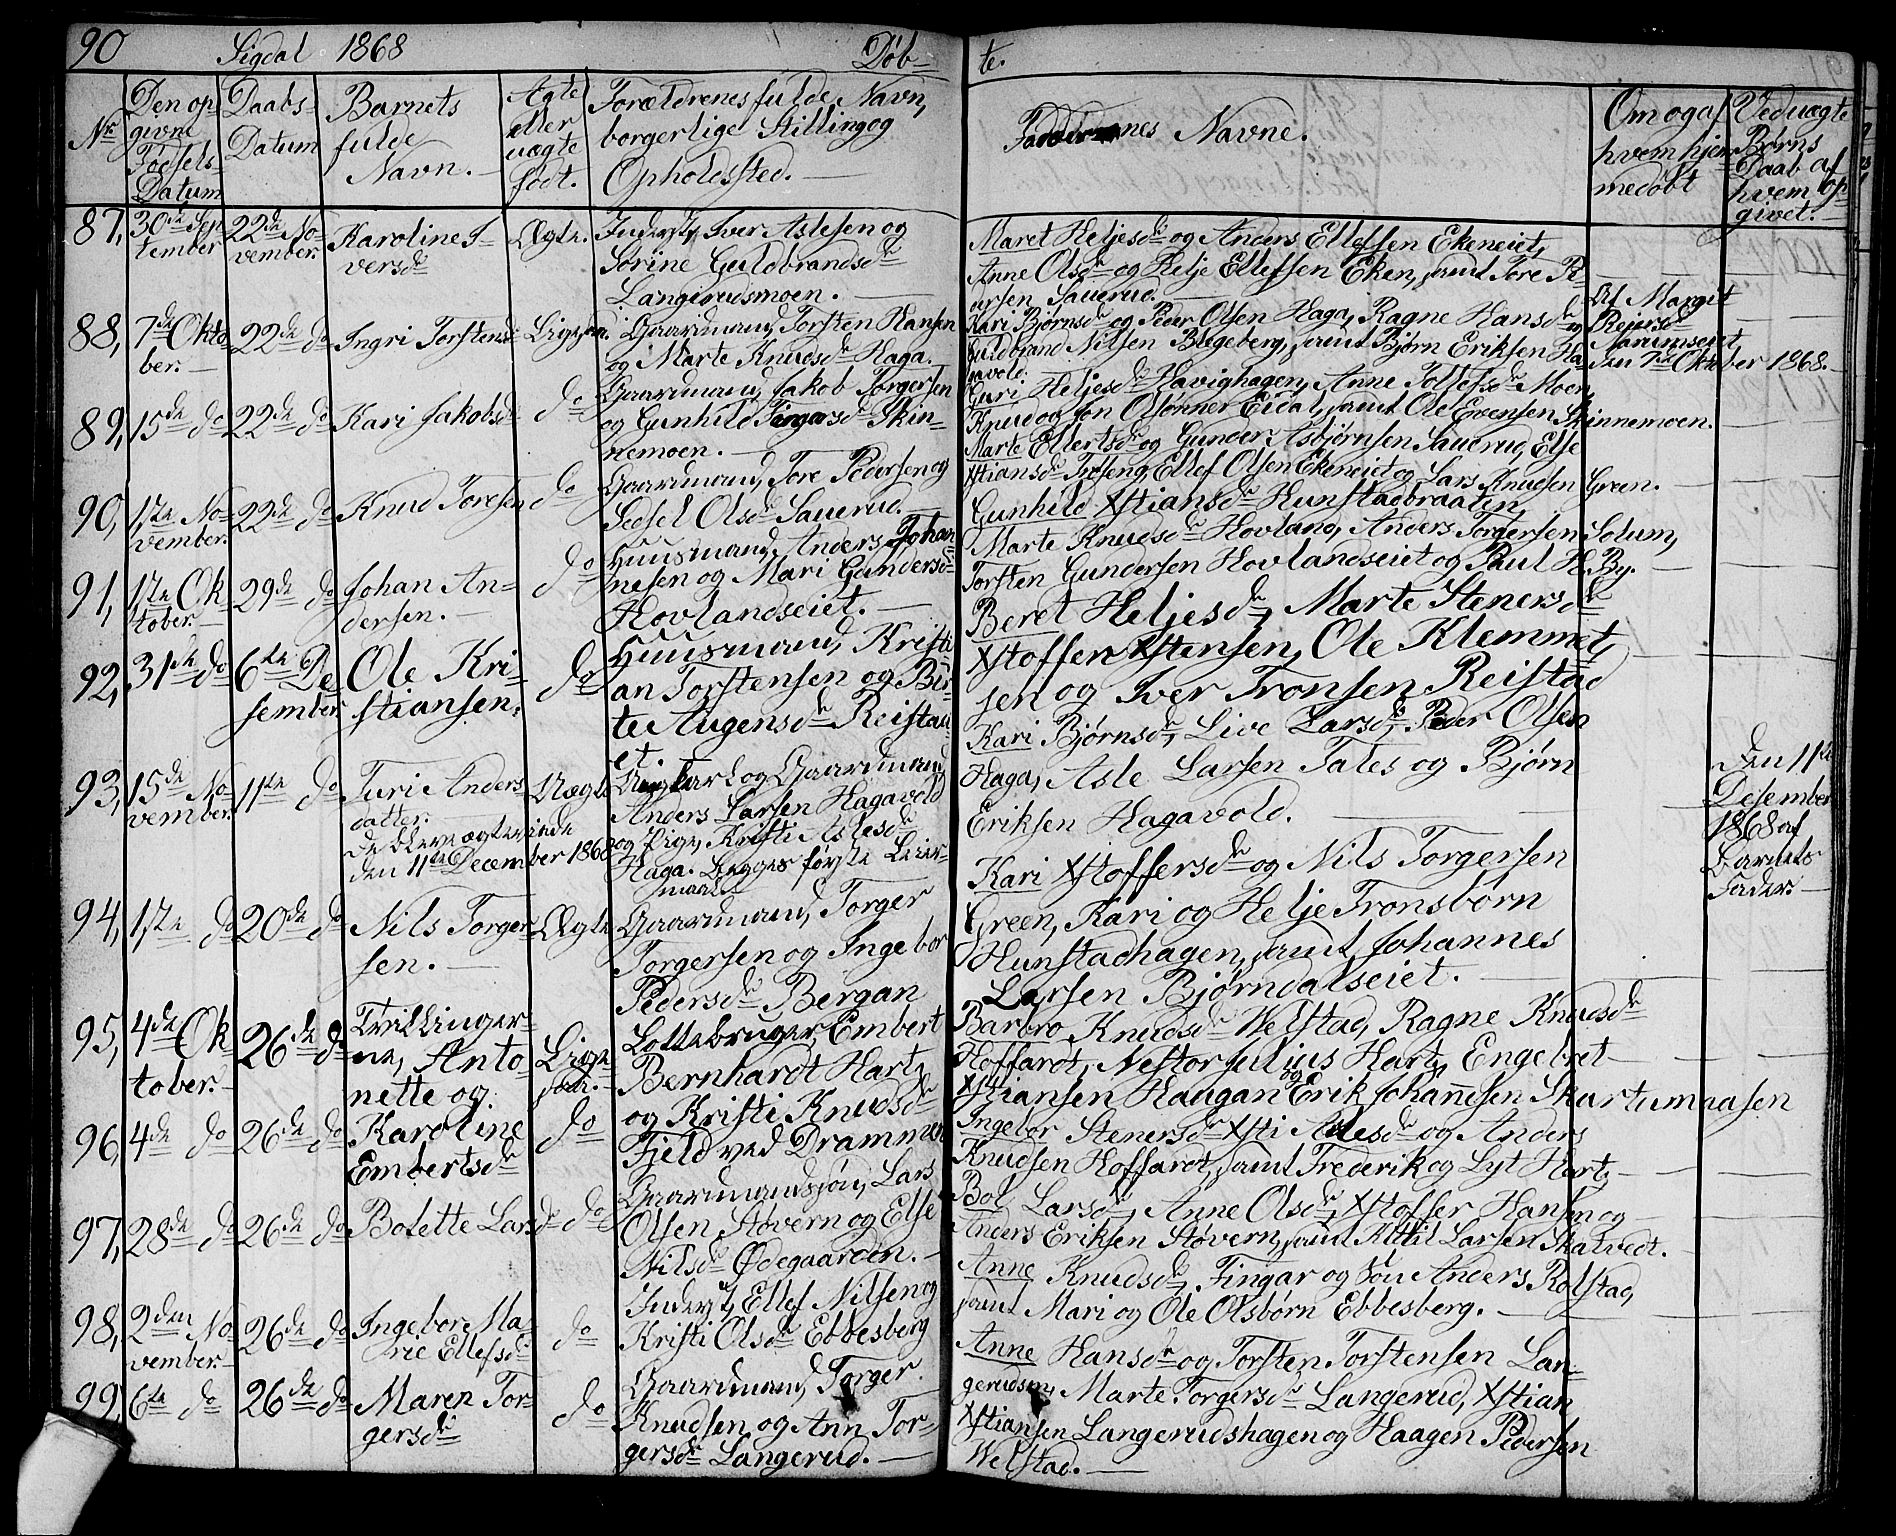 90 Sigdal 1868 Døb-
te.
Nr.
Den op-
givne
Fødsels-
Datum
Daabs-
Datum
Barnets
fulde
Navn.
Ægte
eller
uægte
født.
Forældrenes fulde Navn,
borgerlige Stilling og
Opholdssted.
Faddernes Navne.
Om og af
hvem hjem-
medøbt
Ved uægte
Børns
Daab af
hvem op-
givet.
87, 30de Sep-
tember
22de No-
vember.
Karoline I-
versdr
Ægte.
Inderst, Iver Aslesen og
Sørine Guldbrandsdr
Langerudsmoen.
Maret Heljesdr og Anders Ellefsen Ekeneiet,
Anne Olsdr og Helje Ellefsen Eken, samt Tore P.
Larsen Sauerud.
88, 7de Okto-
ber.
22de do
Ingri Torstensdr
Ligesaa.
Gaardmand, Torsten Hansen
og Marte Knudsdr Haga.
Kari Bjørnsdr og Peder Olsen Haga, Ragne Hansdr og
Guldbrand Nilsen Bugeberg, samt Bjørn Eriksen Ha-
gavold.
Af Margit
Reiersdr
den 7de Oktober 1868.
89, 15de do
22de do
Kari Jakobsdr
do
Gaardmand, Jakob Torgersen
og Gunhild Fingarsdr Skin-
nemoen.
Guri Heljesdr Havighagen, Anne Tollefsdr Moen,
Knud og Jon Olsønner Eidal, samt Ole Evensen Skinnemoen.
90, 1ste No-
vember.
22de do
Knud Toresen
do
Gaardmand, Tore Pedersen og
Sedsel Olsdr Sauerud.
Marte Ellertsdr og Gunder Asbjørnsen Sauerud, Else
Xstiansdr Froseng, Ellef Olsen Ekeneiet og Lars Knudsen Green.
91, 1ste Ok-
tober.
29de do
Johan An-
dersen.
do
Huusmand, Anders Johan-
nesen og Mari Gundersdr
Hovlandseiet.
Gunhild Xstiansdr Hunstadbraaten,
Marte Knudsdr Hovland, Anders Torgersen Solum,
Torsten Gundersen Hovlandseiet og Paul H. By.
92, 31te do
6te De-
sember.
Ole Kri-
stiansen.
do
Huusmand, Kristi-
an Torstensen og Bir-
te Augensdr Reistad-
et.
Beret Heljesdr, Marte Stenersdr
Xstoffer Xstensen, Ole Klemmet-
sen og Iver Tronsen Reistad
93, 15de No-
vember.
11te do
Turi Anders-
datter.
Uægte
Ungkarl og Gaardmand
Anders Larsen Hagavold
og Pige, Kristi Aslesdr
Haga. Begges første Leier-
maal.
De bleve ægteviede
den 11te December 1868
Kari Bjørnsdr, Live Larsdr, Peder Olsen
Haga, Asle Larsen Tales og Bjørn
Eriksen Hagavold.
Den 11te
Desember
1868 af
Barnets
Fader.
94, 1ste do
20de do
Nils Torger-
sen.
Ægte
Gaardmand, Torger
Torgersen og Ingebor
Pedersdr Bergan
Kari Xstoffersdr og Nils Torgersen
Green, Kari og Helje Tronsbørn
Hunstadhagen, samt Johannes
Larsen Bjørndalseiet.
95, 4de Ok-
tober.
26de do
Tvillinger-
ne, Anto-
nette og
Lige-
saa.
Lottebruger, Embert
Bernhardt Hart,
og Kristi Knudsdr
Fjeld ved Drammen
Barbro Knudsdr Welstad, Ragne Knudsdr
Hoffardt, Nestor Julius Hart, Engebret
Xstiansen Haugan og Erik Johannesen Skartumaasen
96, 4de do
26de do
Karoline
Embertsdr
do
Ingebor Stenersdr Xsti Aslesdr og Anders
Knudsen Hoffardt, samt Frederik og Lyt Hart.
97, 28de do
26de do
Bolette Larsdr
do
Gaardmandssøn, Lars
Olsen Støvern og Else
Nilsdr Ødegaarden.
Bol Larsdr, Anne Olsdr, Xstoffer Hansen og
Anders Eriksen Støvern, samt Kittil Larsen Skatvedt.
98, 2den No-
vember.
26de do
Ingebore Ma-
rie Ellefsdr
do
Inderst, Ellef Nilsen og
Kristi Olsdr Ebbesberg
Anne Knudsdr, Fingar og Søn Anders Rolstad,
samt Mari og Ole Olsbørn Ebbesberg.
99, 6te do
26de do
Maren Tor-
gersdr
do
Gaardmand, Torger
Knudsen og Ann Tor-
gersdr Langerud.
Anne Hansdr og Torsten Torstensen Lan-
gerudsm, Marte Torgersdr Langerud, Xstian
Xstiansen Langerudshagen og Haagen Pedersen
Welstad.